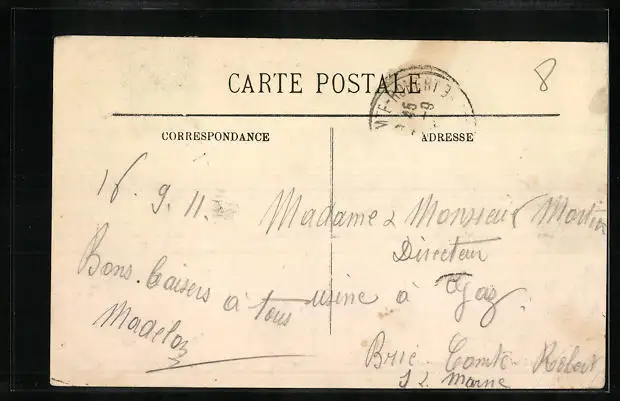 CARTE POSTALE
8
CORRESPONDANCE
16. 9. 11.
Bons Baisers à tous
ADRESSE
Madame & Monsieur Martin
Directeur
usine à Gaz
Brie-Comte-Robert
S & Marne